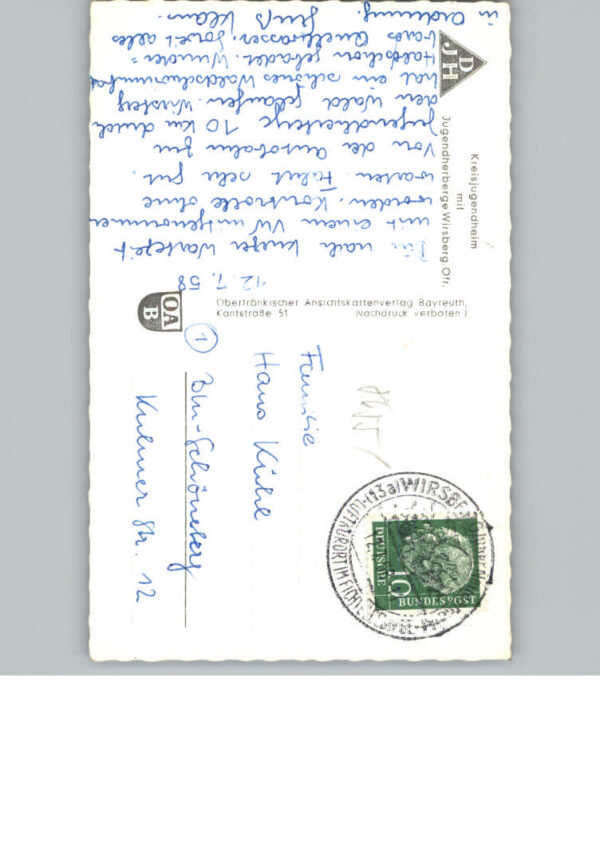 D
JH
Kreisjugendheim
mit
Jugendherberge Wirsberg Ofr.
12.7.58
Bin nach kurzer Wartezeit
mit einem VW mitgenommen
worden. Kontrolle ohne
warten. Fahrt sehr gut.
Von der Autobahn zur
Jugendherberge 10 km durch
den Wald gelaufen. Wirsberg
hat ein schönes Waldschwimmbad
Habe schon gebadet. Wunder=
bares Quellwasser. Soweit alles
in Ordnung. Gruß Klaus.
OA
B
Oberfränkischer Ansichtskartenverlag Bayreuth,
Kantstraße 51 Nachdruck verboten !
Familie
Hans Kühl
1
Bln-Schöneberg
Kulmer Str. 12
(13a) WIRSBERG
LUFTKURORT IM FICHTELGEBIRGE
10
DEUTSCHE
BUNDESPOST